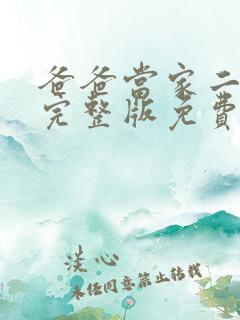 爸爸當家二
完整版免費
淡心
未经同意禁止转载